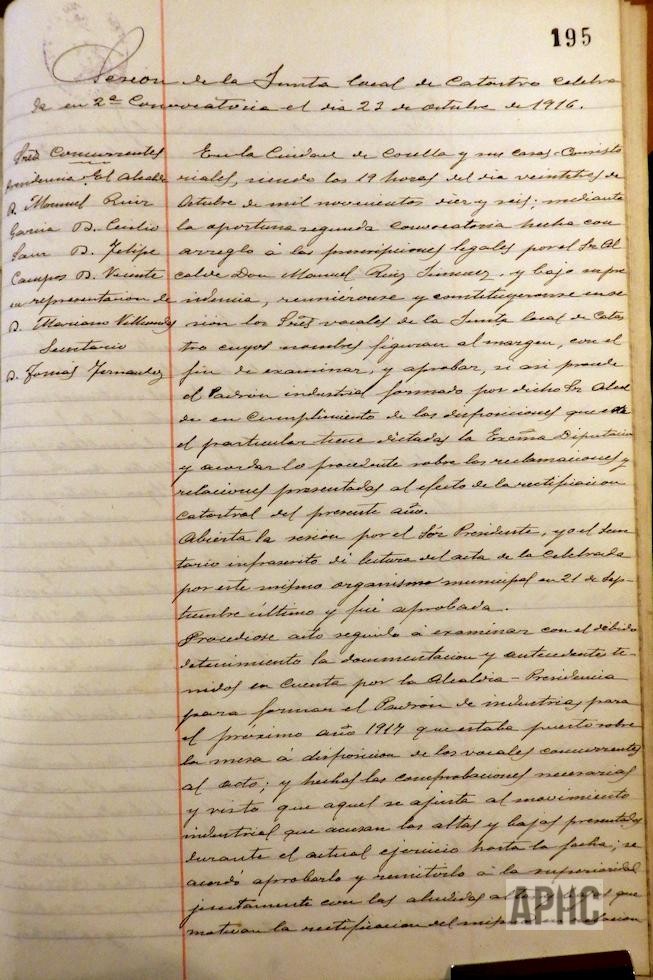 195
Sesion de la Junta local de Catastro celebra
da en 2ª Convocatoria el dia 23 de Octubre de 1916.
Sres Concurrentes
Presidencia El Alcalde
D. Manuel Ruiz
Garcia D. Emilio
Sanz D. Felipe
Campos D. Vicente
en representacion de
D. Mariano
Secretario
D. Tomas Fernandez
En la Ciudad de Corella y sus casas Consisto
riales, siendo las 19 horas del dia veintitres de
Octubre de mil novecientos diez y seis; mediante
la oportuna segunda convocatoria hecha con
arreglo á las prescripciones legales por el Sr Al
calde Don Manuel Ruiz Jimenez, y bajo su pre
sidencia, reuniéronse y constituyeronse en se
sion los Sres vocales de la Junta local de Catas
tro cuyos nombres figuran al margen, con el
fin de examinar, y aprobar, si asi procede
el Padron industrial formado por dicho Sr Alcal
de en cumplimiento de las disposiciones que sobre
el particular tiene dictadas la Excma Diputacion
y acordar lo procedente sobre las reclamaciones y
relaciones presentadas al efecto de la rectificacion
catastral del presente año.
Abierta la sesion por el Sór Presidente, yo el Secre
tario infrascrito di lectura del acta de la celebrada
por este mismo organismo municipal en 21 de Sep-
tiembre último y fué aprobada.
Procediose acto seguido á examinar con el debido
detenimiento la documentacion y antecedentes te-
nidos en cuenta por la Alcaldia-Presidencia
para formar el Padron de industrias para
el proximo año 1917 que estaba puesto sobre
la mesa á disposicion de los vocales concurrentes
al acto; y hechas las comprobaciones necesarias
y visto que aquel se ajusta al movimiento
industrial que acusan las altas y bajas presentadas
durante el actual ejercicio hasta la fecha; se
acordó aprobarlo y remitirlo á la superioridad
juntamente con las aludidas que
motivan la rectificacion del
APHC